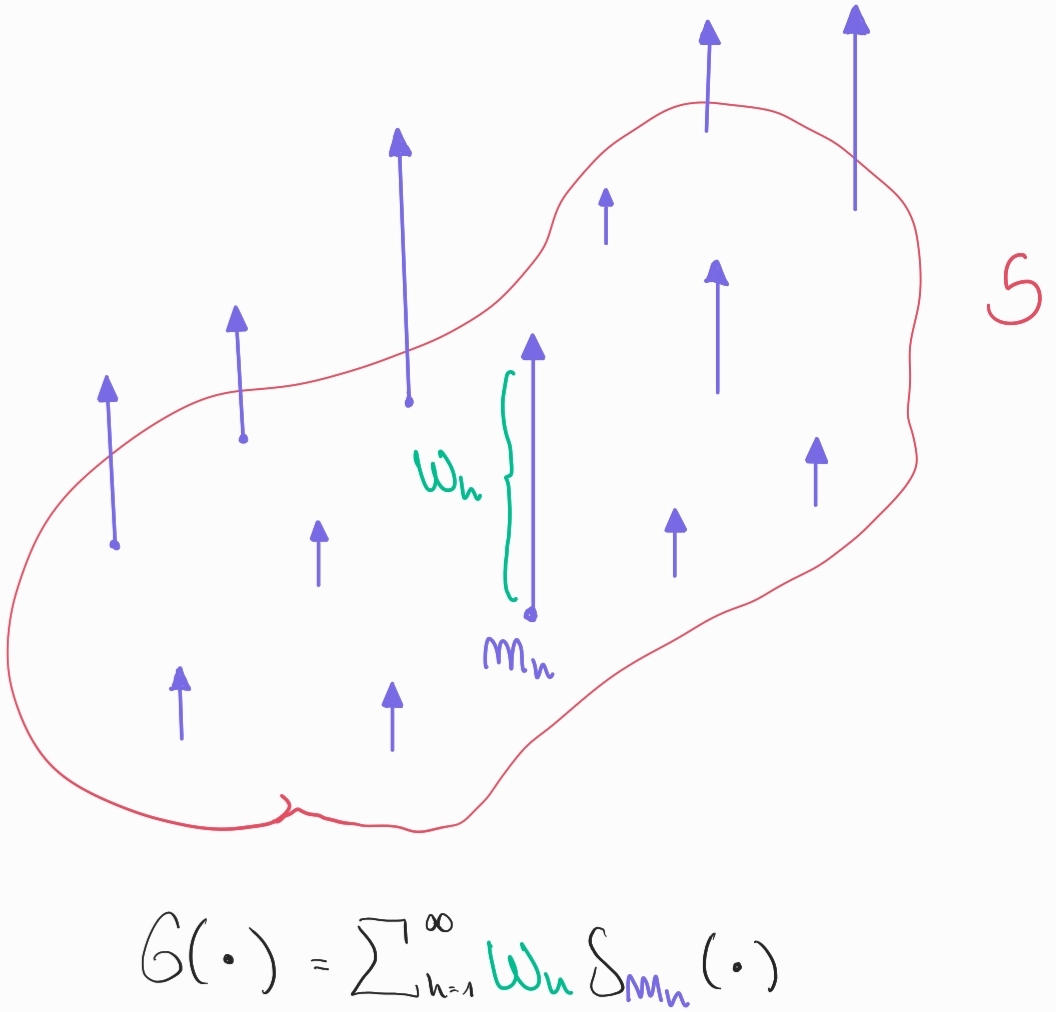 S
w_h
m_h
G(•) = ∑_{h=1}^∞ w_h δ_{m_h}(•)